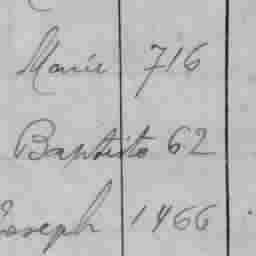 Marie 716
Baptiste 62
Joseph 1466